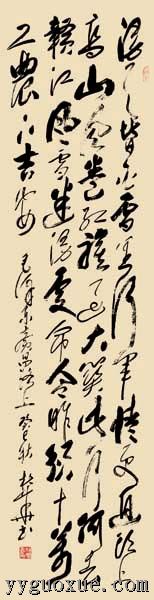 漫天皆白雪里行军情更迫头上
高山风卷红旗过大关此行何去
赣江风雪迷漫处命令昨颁十万
工农下吉安
毛泽东广昌路上 癸巳秋 书
www.yyguoxue.com